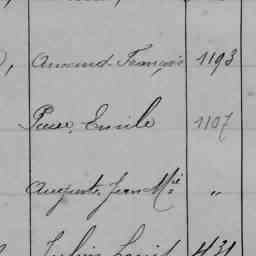 , Armand François 1193
Pierre, Emile 1107
Auguste Jean Mie "
Julien Louis 431